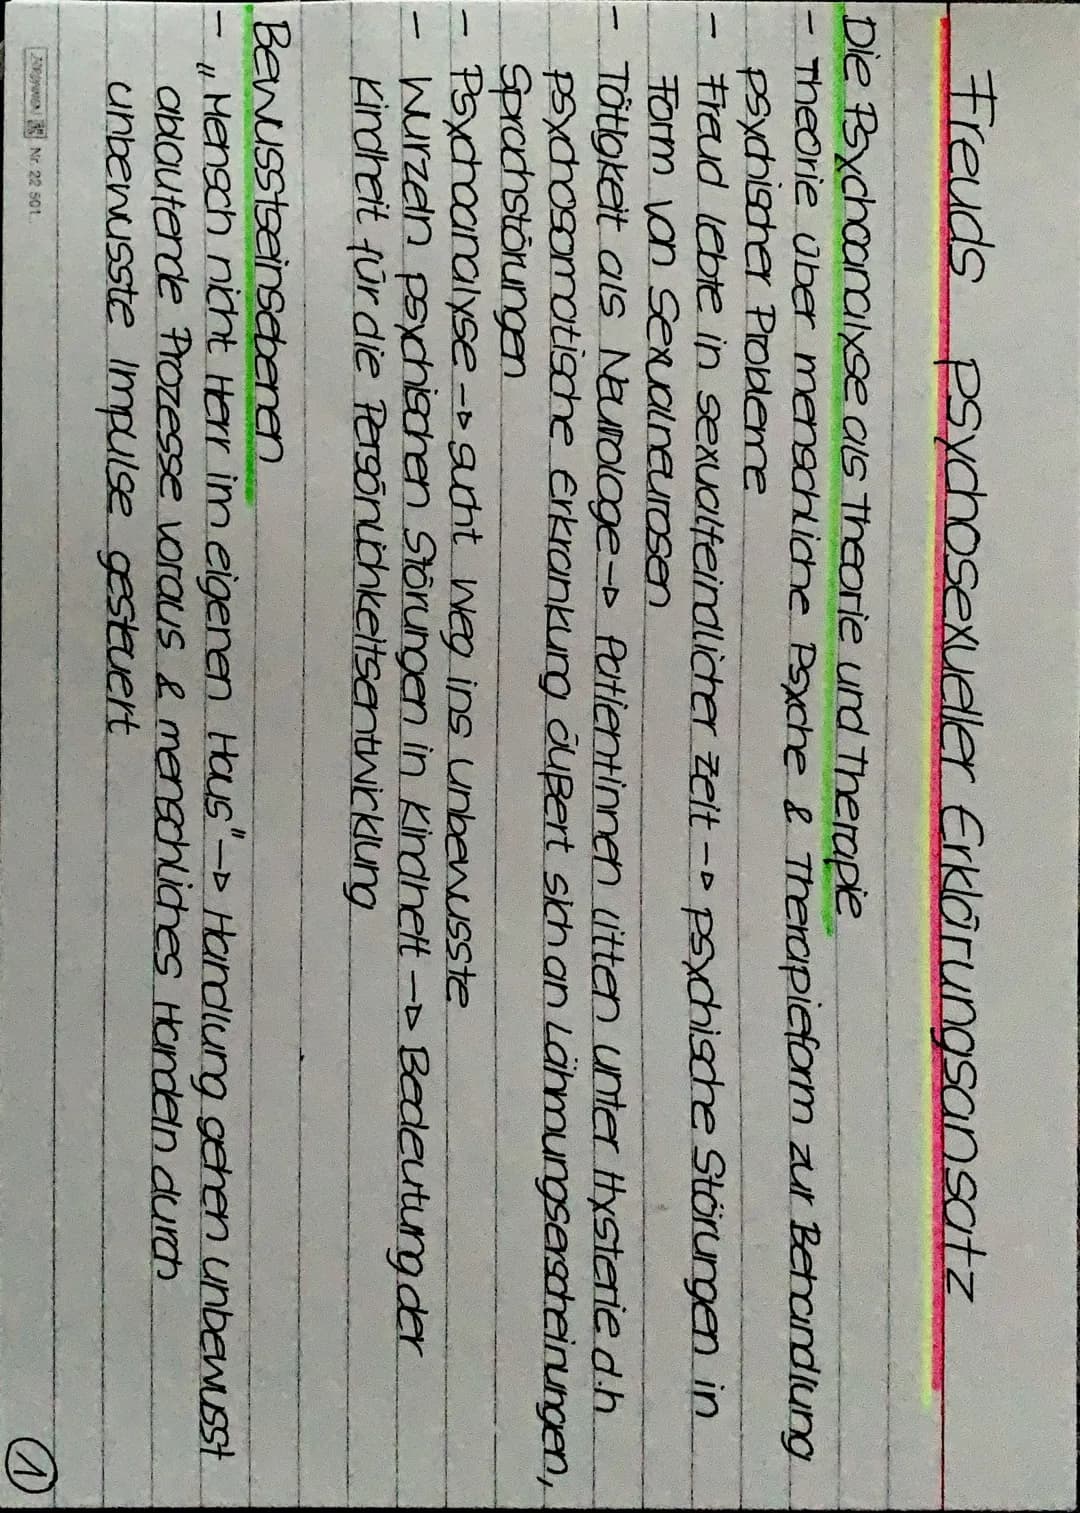 Freuds psychosexueller Erklärungsansatz
Die Psychoanalyse als Theorie und Therapie
- Theorie über menschliche Psyche & Therapieform zur Behandlung
psychischer Probleme
- Freud lebte in sexualfeindlicher Zeit → psychische Störungen in
Form von Sexualneurosen
- Tätigkeit als Neurologe → Patientinnen litten unter Hysterie d.h
psychosomatische Erkrankung äußert sich an Lähmungserscheinungen,
Sprachstörungen
- Psychoanalyse → sucht Weg ins unbewusste
- Wurzeln psychischen Störungen in Kindheit → Bedeutung der
Kindheit für die Persönlichkeitsentwicklung
Bewusstseinsebenen
- „Mensch nicht Herr im eigenen Haus" → Handlung gehen unbewusst
ablaufende Prozesse voraus & menschliches Handeln durch
unbewusste Impulse gesteuert
Nr. 22 501
1